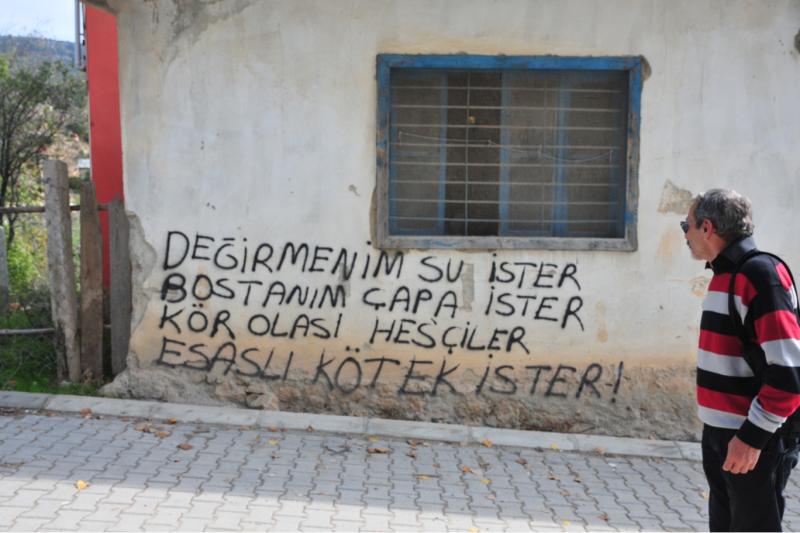 DEĞİRMENİM SU İSTER
BOSTANIM ÇAPA İSTER
KÖR OLASI HESÇİLER
ESASLI KÖTEK İSTER!